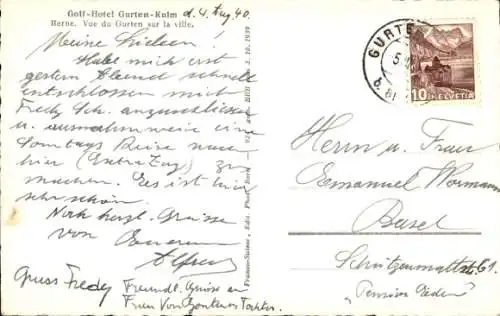 Golf-Hotel Gurten-Kulm
Berne. Vue du Gurten sur la ville.
d. 4. Aug. 40.
Meine Lieben!
Habe mich erst
gestern Abend schnell
entschlossen mich
Fredy Sch. anzuschliessen
u. ausnahmsweise eine
Sonntags Reise nach
hier (Extrazug) zu
machen. Es ist hier
sehr schön.
Noch herzl. Grüsse
von Eurem
Alfred
Gruss Fredy
Freundl. Grüsse an
Frau Von
Franco-Suisse, Edit. Phot. Berne
3. 10. 1939
GURTE
5.
HELVETIA
10
Herrn u. Frau
Emanuel
Basel
Schützenmattstr. 61.
"Pension Eden"